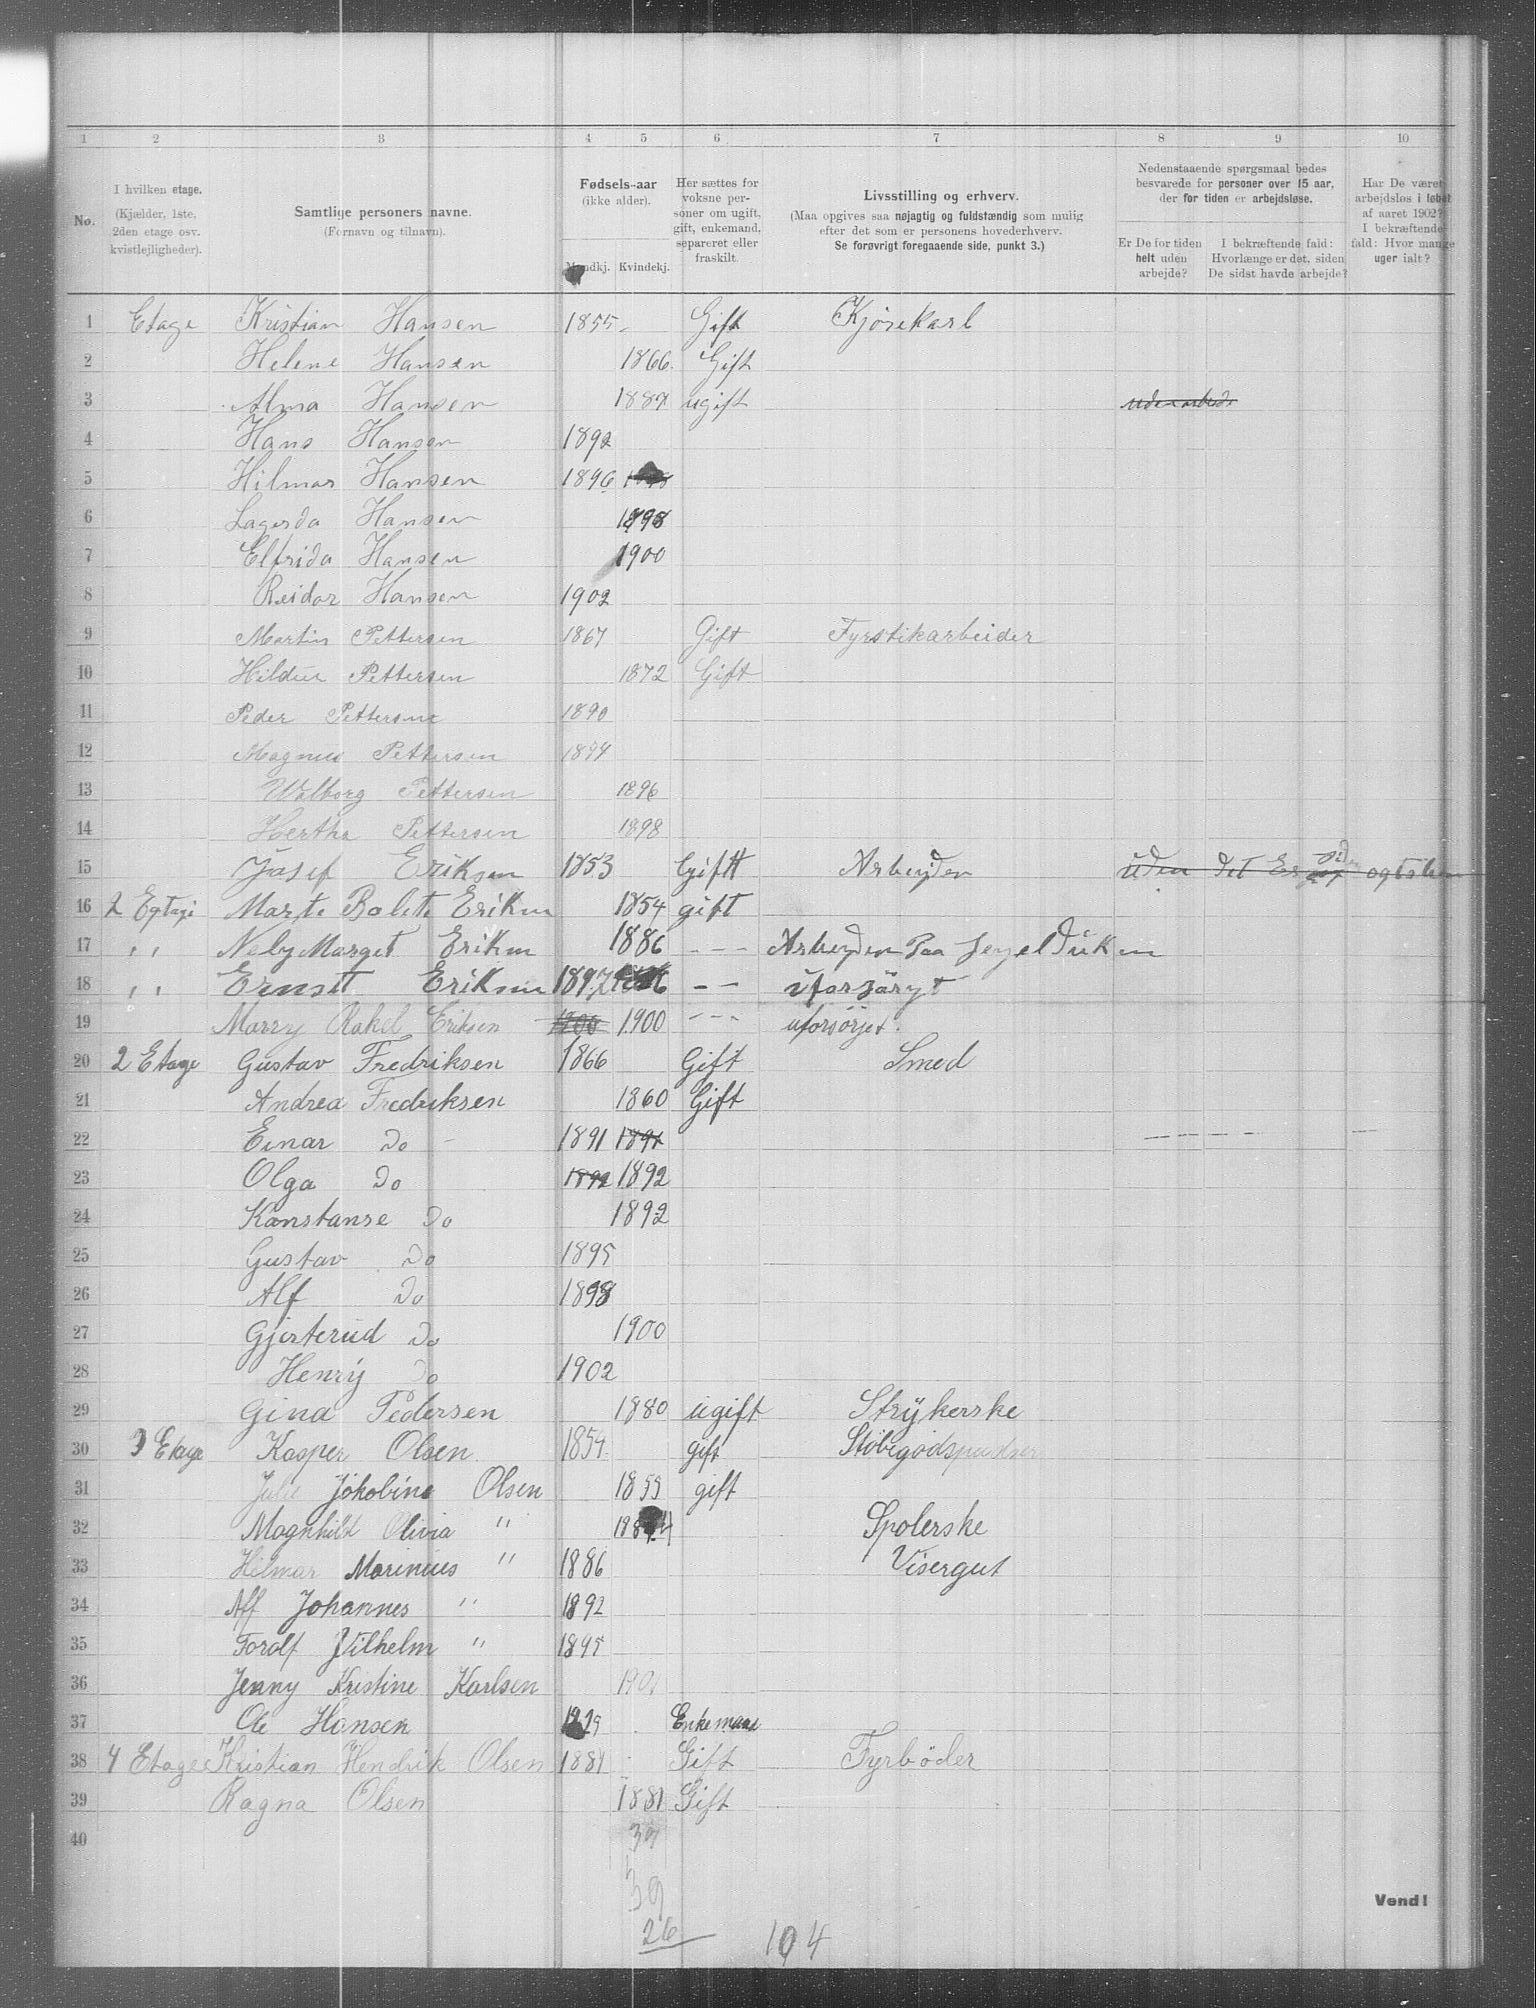 1 2 3 4 5 6 7 8 9 10
No.
I hvilken etage.
(Kjælder, 1ste, 2den etage osv. kvistlejligheder).
Samtlige personers navne.
(Fornavn og tilnavn).
Fødsels-aar
(ikke alder).
Mandkj. Kvindekj.
Her sættes for voksne personer om ugift, gift, enkemand, separeret eller fraskilt.
Livsstilling og erhverv.
(Maa opgives saa nøjagtig og fuldstændig som mulig efter det som er personens hovederhverv.
Se forøvrigt foregaaende side, punkt 3.)
Nedenstaaende spørgsmaal bedes besvarede for personer over 15 aar, der for tiden er arbejdsløse.
Er De for tiden helt uden arbejde?
I bekræftende fald: Hvorlænge er det, siden De sidst havde arbejde?
Har De været arbejdsløs i løbet af aaret 1902? I bekræftende fald: Hvor mange uger ialt?
1 Etage Kristian Hansen 1855 Gift Kjørekarl
2 Helene Hansen 1866. Gift
3 Alma Hansen 1887 ugift
4 Hans Hansen 1892
5 Hilmar Hansen 1896
6 Lagerda Hansen 1898
7 Elfrida Hansen 1900
8 Reidar Hansen 1902
9 Martin Pettersen 1867 Gift Fyrstikarbeider
10 Hildur Pettersen 1872 Gift
11 Peder Pettersen 1890
12 Magnus Pettersen 1894
13 Walborg Pettersen 1896
14 Hertha Pettersen 1898
15 Josef Eriksen 1853 Gift Arbeyden uden det Er og
16 2 Egtage Marte Bolete Eriksn 1854 gift
17 " Neby Marget Eriksn 1886 --- Arbeyden Paa Seyelduken
18 " Ernst Eriksn 1897 -- uforsäryt
19 Marry Rakel Eriksen 1900 1900 --- uforsørjet.
20 2 Etage Gustav Fredriksen 1866 Gift Smed
21 Andrea Fredriksen 1860 Gift
22 Einar Do - 1891 1891
23 Olga Do 1892 1892
24 Konstanse Do 1892
25 Gustav Do 1895
26 Alf Do 1898
27 Gjerterud Do 1900
28 Henry Do 1902
29 Gina Pedersen 1880 ugift Strykerske
30 3 Etage Kasper Olsen 1854 gift Støbegodspudser
31 Julie Jokobine Olsen 1855 gift
32 Magnhild Olivia " Spolerske
33 Hilmar Marinius " 1886 Visergut
34 Alf Johannes " 1892
35 Torolf Vilhelm " 1895
36 Jenny Kristine Karlsen 1901
37 Ole Hansen Enkemand
38 4 Etage Kristian Hendrik Olsen 1881 Gift Fyrbøder
39 Ragna Olsen 1881 Gift
40 39
39
26 104
Vend!